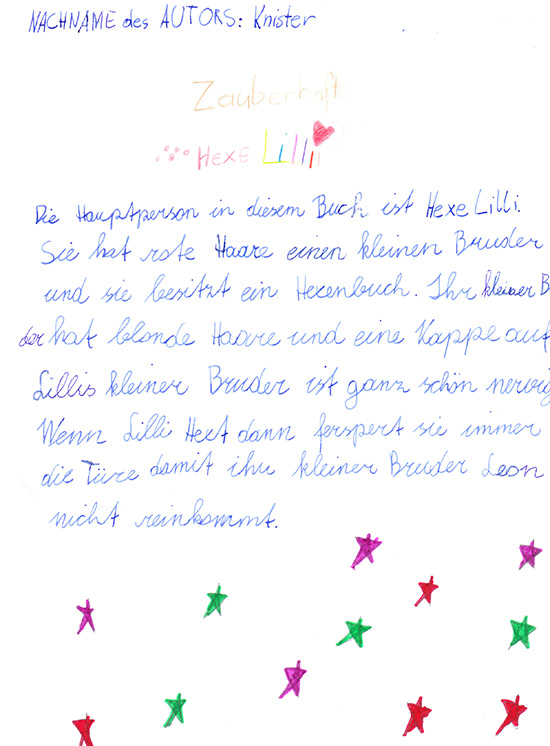 NACHNAME des AUTORS: Knister
Zauberhaft
HEXE Lilli
Die Hauptperson in diesem Buch ist Hexe Lilli.
Sie hat rote Haare einen kleinen Bruder
und sie besitzt ein Hexenbuch. Ihr kleiner B
der hat blonde Haare und eine Kappe auf
Lillis kleiner Bruder ist ganz schön nervig
Wenn Lilli Hext dann ferspert sie immer
die Türe damit ihr kleiner Bruder Leon
nicht reinkommt.